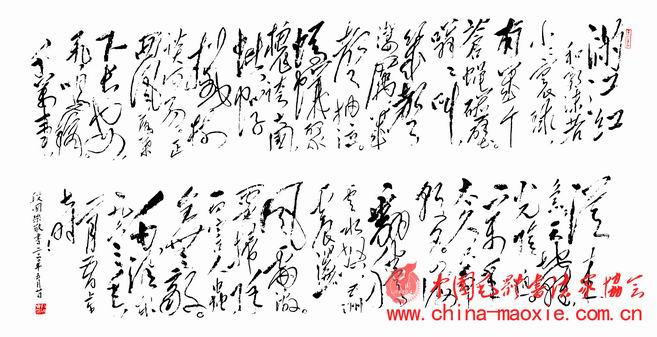 满江红
和郭沫若
小小寰球
有几个
苍蝇碰壁。
嗡嗡叫
几声
凄厉几声
抽泣。
蚂蚁缘
槐夸大国
蚍蜉
撼树
谈何易。正
西风落叶
下长安
飞鸣镝。
多少事，
从来
急。天地转
光阴迫
一万年
太久只争
朝夕。四海
翻腾
云水怒五洲
震荡
风雷激
要扫除
一切害人虫
全无敌
毛泽东
一九六三年
一月
中国毛体书法家协会
www.china-maoxie.com